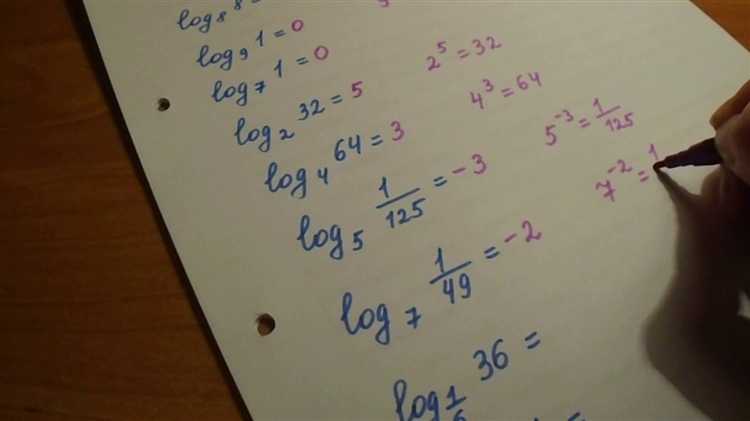 log₈ 8 =
log₉ 1 = 0
log₇ 1 = 0
log₂ 32 = 5 2⁵ = 32
log₄ 64 = 3 4³ = 64
log₅ 1/125 = -3 5⁻³ = 1/125
log₇ 1/49 = -2 7⁻² = 1
log 1/6 36 =
=